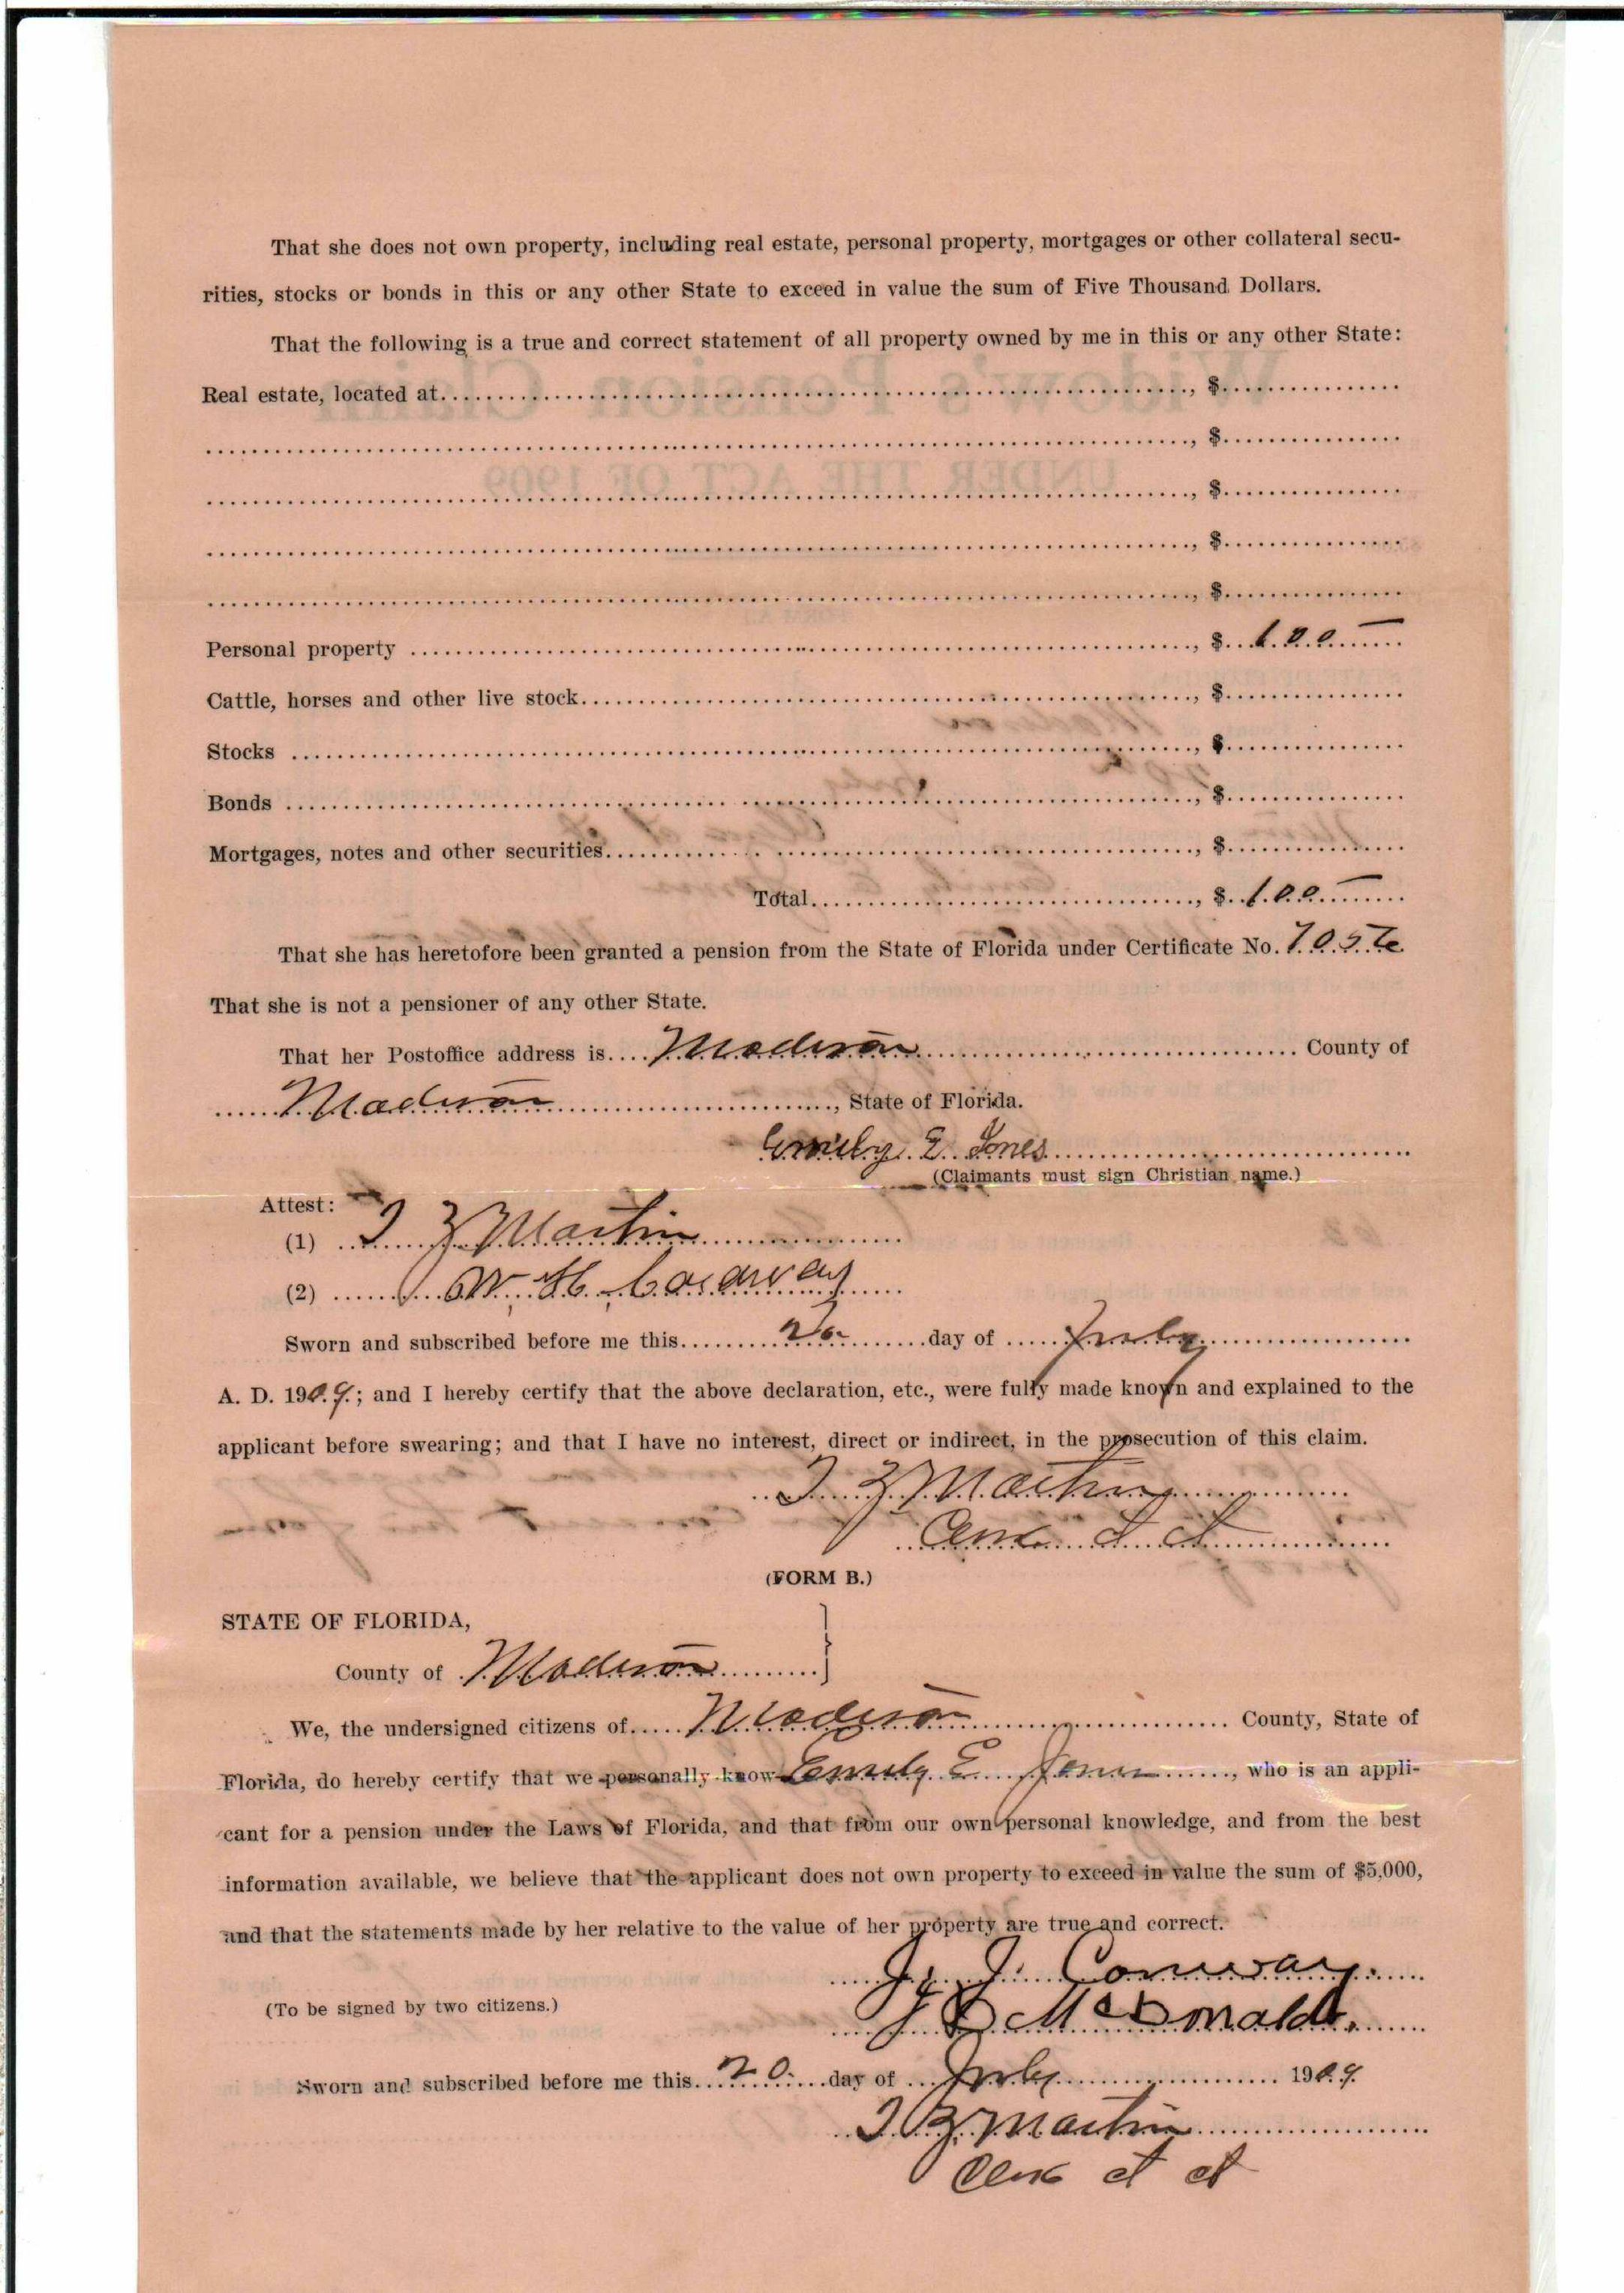 That she does not own property, including real estate, personal property, mortgages or other collateral secu-
rities, stocks or bonds in this or any other State to exceed in value the sum of Five Thousand Dollars.
That the following is a true and correct statement of all property owned by me in this or any other State:
Real estate, located at , $
, $
, $
, $
, $
Personal property , $ 100
Cattle, horses and other live stock , $
Stocks , $
Bonds , $
Mortgages, notes and other securities , $
Total , $ 100
That she has heretofore been granted a pension from the State of Florida under Certificate No.
That she is not a pensioner of any other State.
That her Postoffice address is Madison County of
Madison , State of Florida.
Emily E. Jones
(Claimants must sign Christian name.)
Attest:
(1) Martin
(2) W. H.
Sworn and subscribed before me this 20 day of July
A. D. 1909; and I hereby certify that the above declaration, etc., were fully made known and explained to the
applicant before swearing; and that I have no interest, direct or indirect, in the prosecution of this claim.
Martin
Clerk Ct Ct
(FORM B.)
STATE OF FLORIDA,
County of Madison
We, the undersigned citizens of Madison County, State of
Florida, do hereby certify that we personally know Emily E Jones , who is an appli-
cant for a pension under the Laws of Florida, and that from our own personal knowledge, and from the best
information available, we believe that the applicant does not own property to exceed in value the sum of $5,000,
and that the statements made by her relative to the value of her property are true and correct.
J. J. Conway.
(To be signed by two citizens.)
J B McDonald.
Sworn and subscribed before me this 20 day of July 1909.
Martin
Clerk Ct Ct